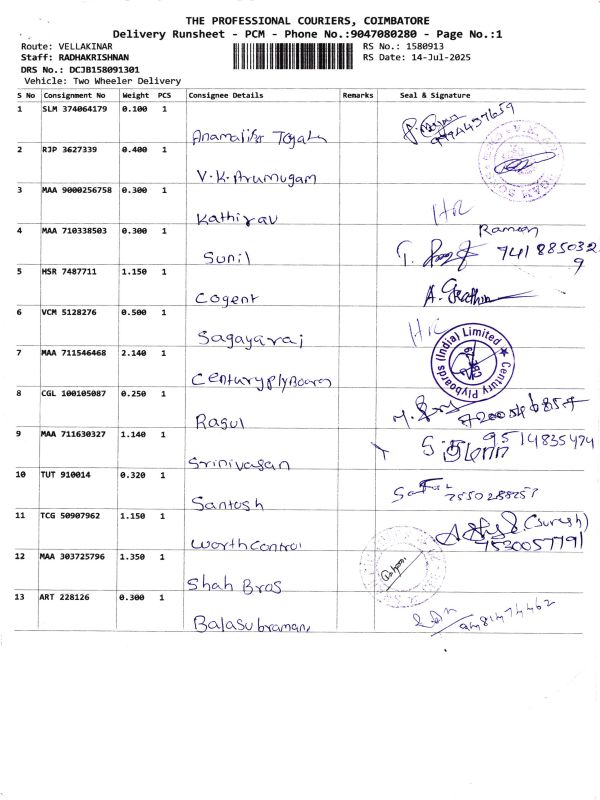 THE PROFESSIONAL COURIERS, COIMBATORE
Delivery Runsheet - PCM - Phone No.:9047080280 - Page No.:1
Route: VELLAKINAR RS No.: 1580913
Staff: RADHAKRISHNAN RS Date: 14-Jul-2025
DRS No.: DCJB158091301
Vehicle: Two Wheeler Delivery
S No Consignment No Weight PCS Consignee Details Remarks Seal & Signature
1 SLM 374064179 0.100 1
2 RJP 3627339 0.400 1 V.K.Arumugam
3 MAA 9000256758 0.300 1 Kathirav
4 MAA 710338503 0.300 1 Sunil
5 HSR 7487711 1.150 1 Cogent
6 VCM 5128276 0.500 1 Sagayaraj
7 MAA 711546468 2.140 1 Centuryplyboards Century Plyboards (India) Limited
8 CGL 100105087 0.250 1 Ragul
9 MAA 711630327 1.140 1 Srinivasan 9514835474
10 TUT 910014 0.320 1 Santosh
11 TCG 50907962 1.150 1 Worth Control (Suresh)
12 MAA 303725796 1.350 1 Shah Bros
13 ART 228126 0.300 1 Balasubramani